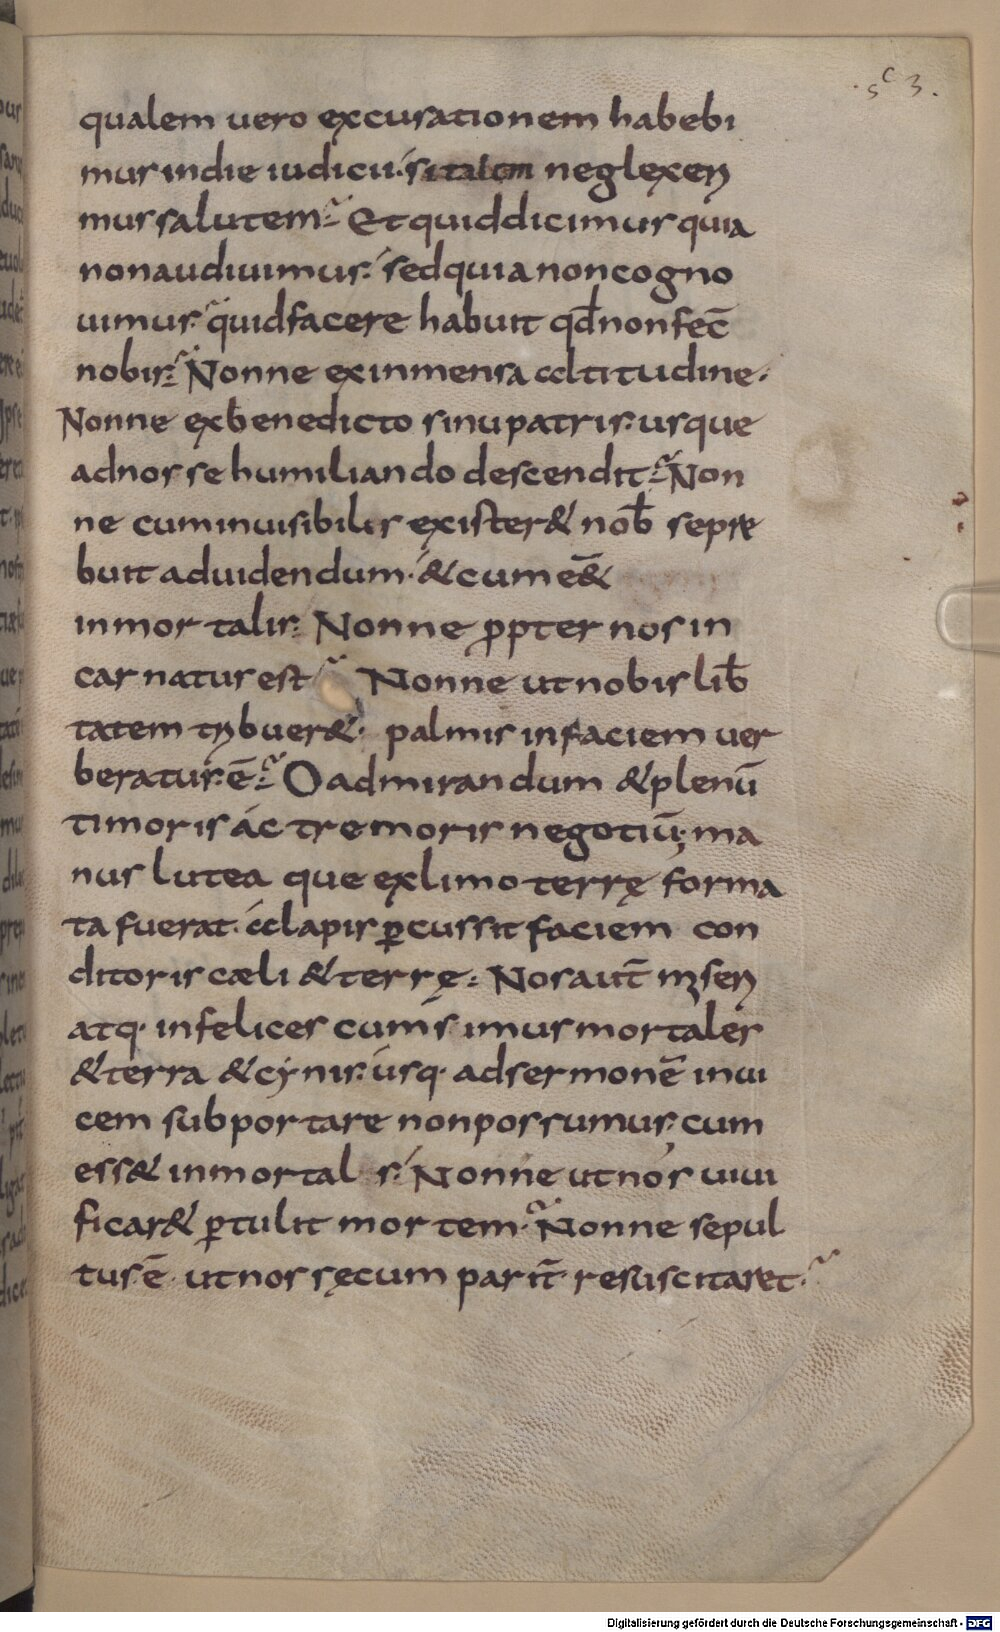 sc 3.
qualem uero excusationem habebi
mur in die iudicii. si talem neglexeri
mus salutem? Et quid dicimus quia
non audiuimus. sed quia non cogno
uimus. quid facere habuit qđ non fec̄
nobis? Nonne ex inmensa altitudine.
Nonne ex benedicto sinu patris. usque
ad nos se humiliando descendit? Non
ne cum inuisibilis exister& nob̄ se pre
buit ad uidendum. & cum ē&
inmortalis. Nonne ꝓpter nos in
carnatus est? Nonne ut nobis lib̄
tatem tribuer&. palmis in faciem uer
beratus ē? O admirandum & plenū
timoris ac tremoris negotiū; ma
nus lutea que ex limo terrę forma
ta fuerat. alapis ꝑcussit faciem con
ditoris cæli & terrę. Nos aut̄ miseri
atq. infelices cum simus mortales
& terra & cynis. usq. ad sermonē inui
cem subportare non possumus; cum
ess& inmortal s. Nonne ut nos uiui
ficar& ꝑtulit mortem? Nonne sepul
tus ē. ut nos sęcum parit̄ resuscitaret?
Digitalisierung gefördert durch die Deutsche Forschungsgemeinschaft - DFG